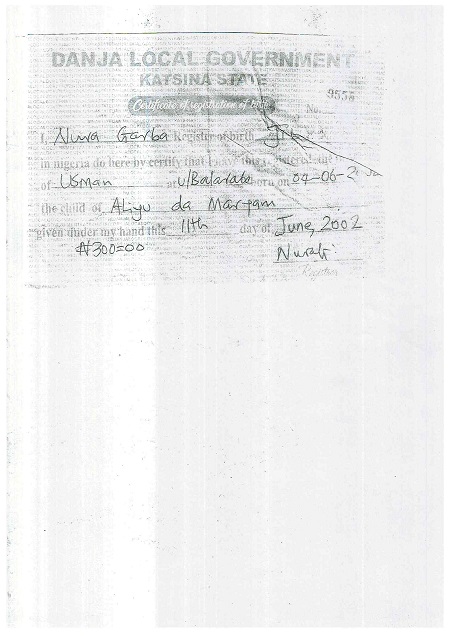 DANJA LOCAL GOVERNMENT
KATSINA STATE
Certificate of registration of birth
No. 9555
I, Nura Garba Register of birth
in nigeria do here by certify that I have this registered the
of Usman at U/Bafarate born on 04-06-2
the child of Aliyu da Maryam
given under my hand this 11th day of June, 2002
₦300=00 Nurati
Registrar